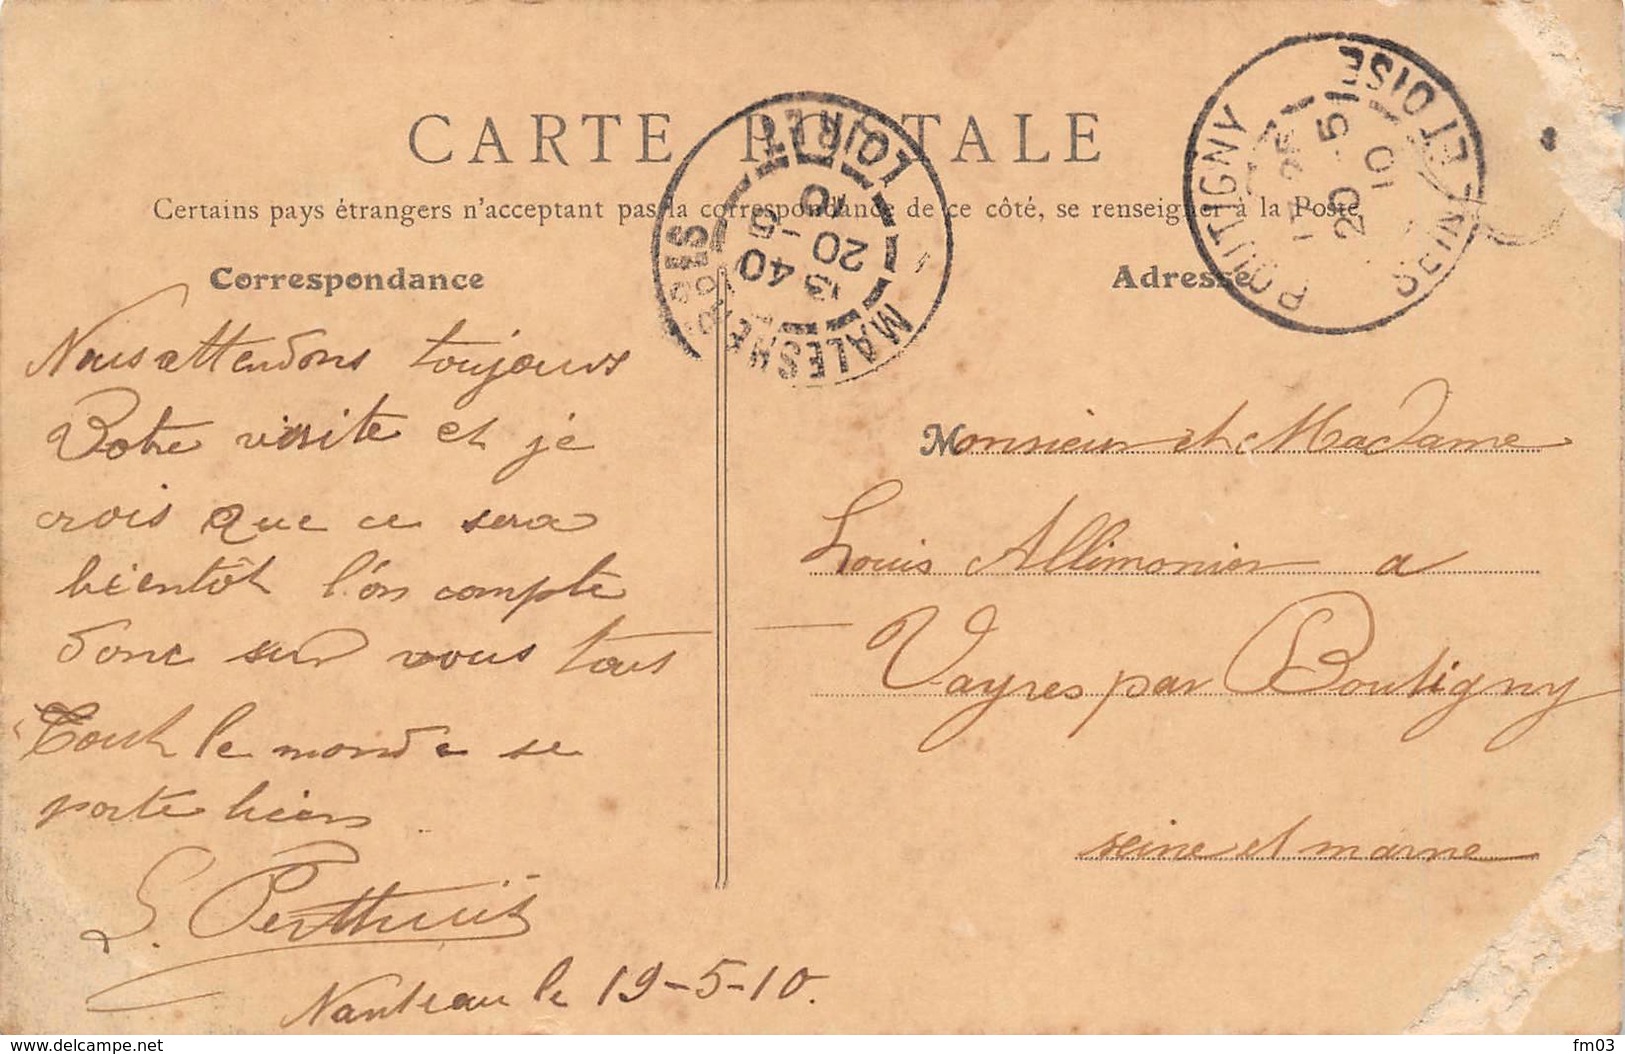 CARTE POSTALE
Certains pays étrangers n'acceptent pas la correspondance de ce côté, se renseigner à la Poste
Correspondance
Adresse
MALESHERBES LOIRET
13 40
20 -5
10
BOUTIGNY SEINE-ET-OISE
20 5
10
Nous attendons toujours
Votre visite et je
crois que ce sera
bientôt l'on compte
donc sur vous tous
Tout le monde se
porte bien
S. Perthuis
Nanteau le 19-5-10.
Monsieur et Madame
Louis Allimonier a
Vayres par Boutigny
seine et marne
www.delcampe.net
fm03